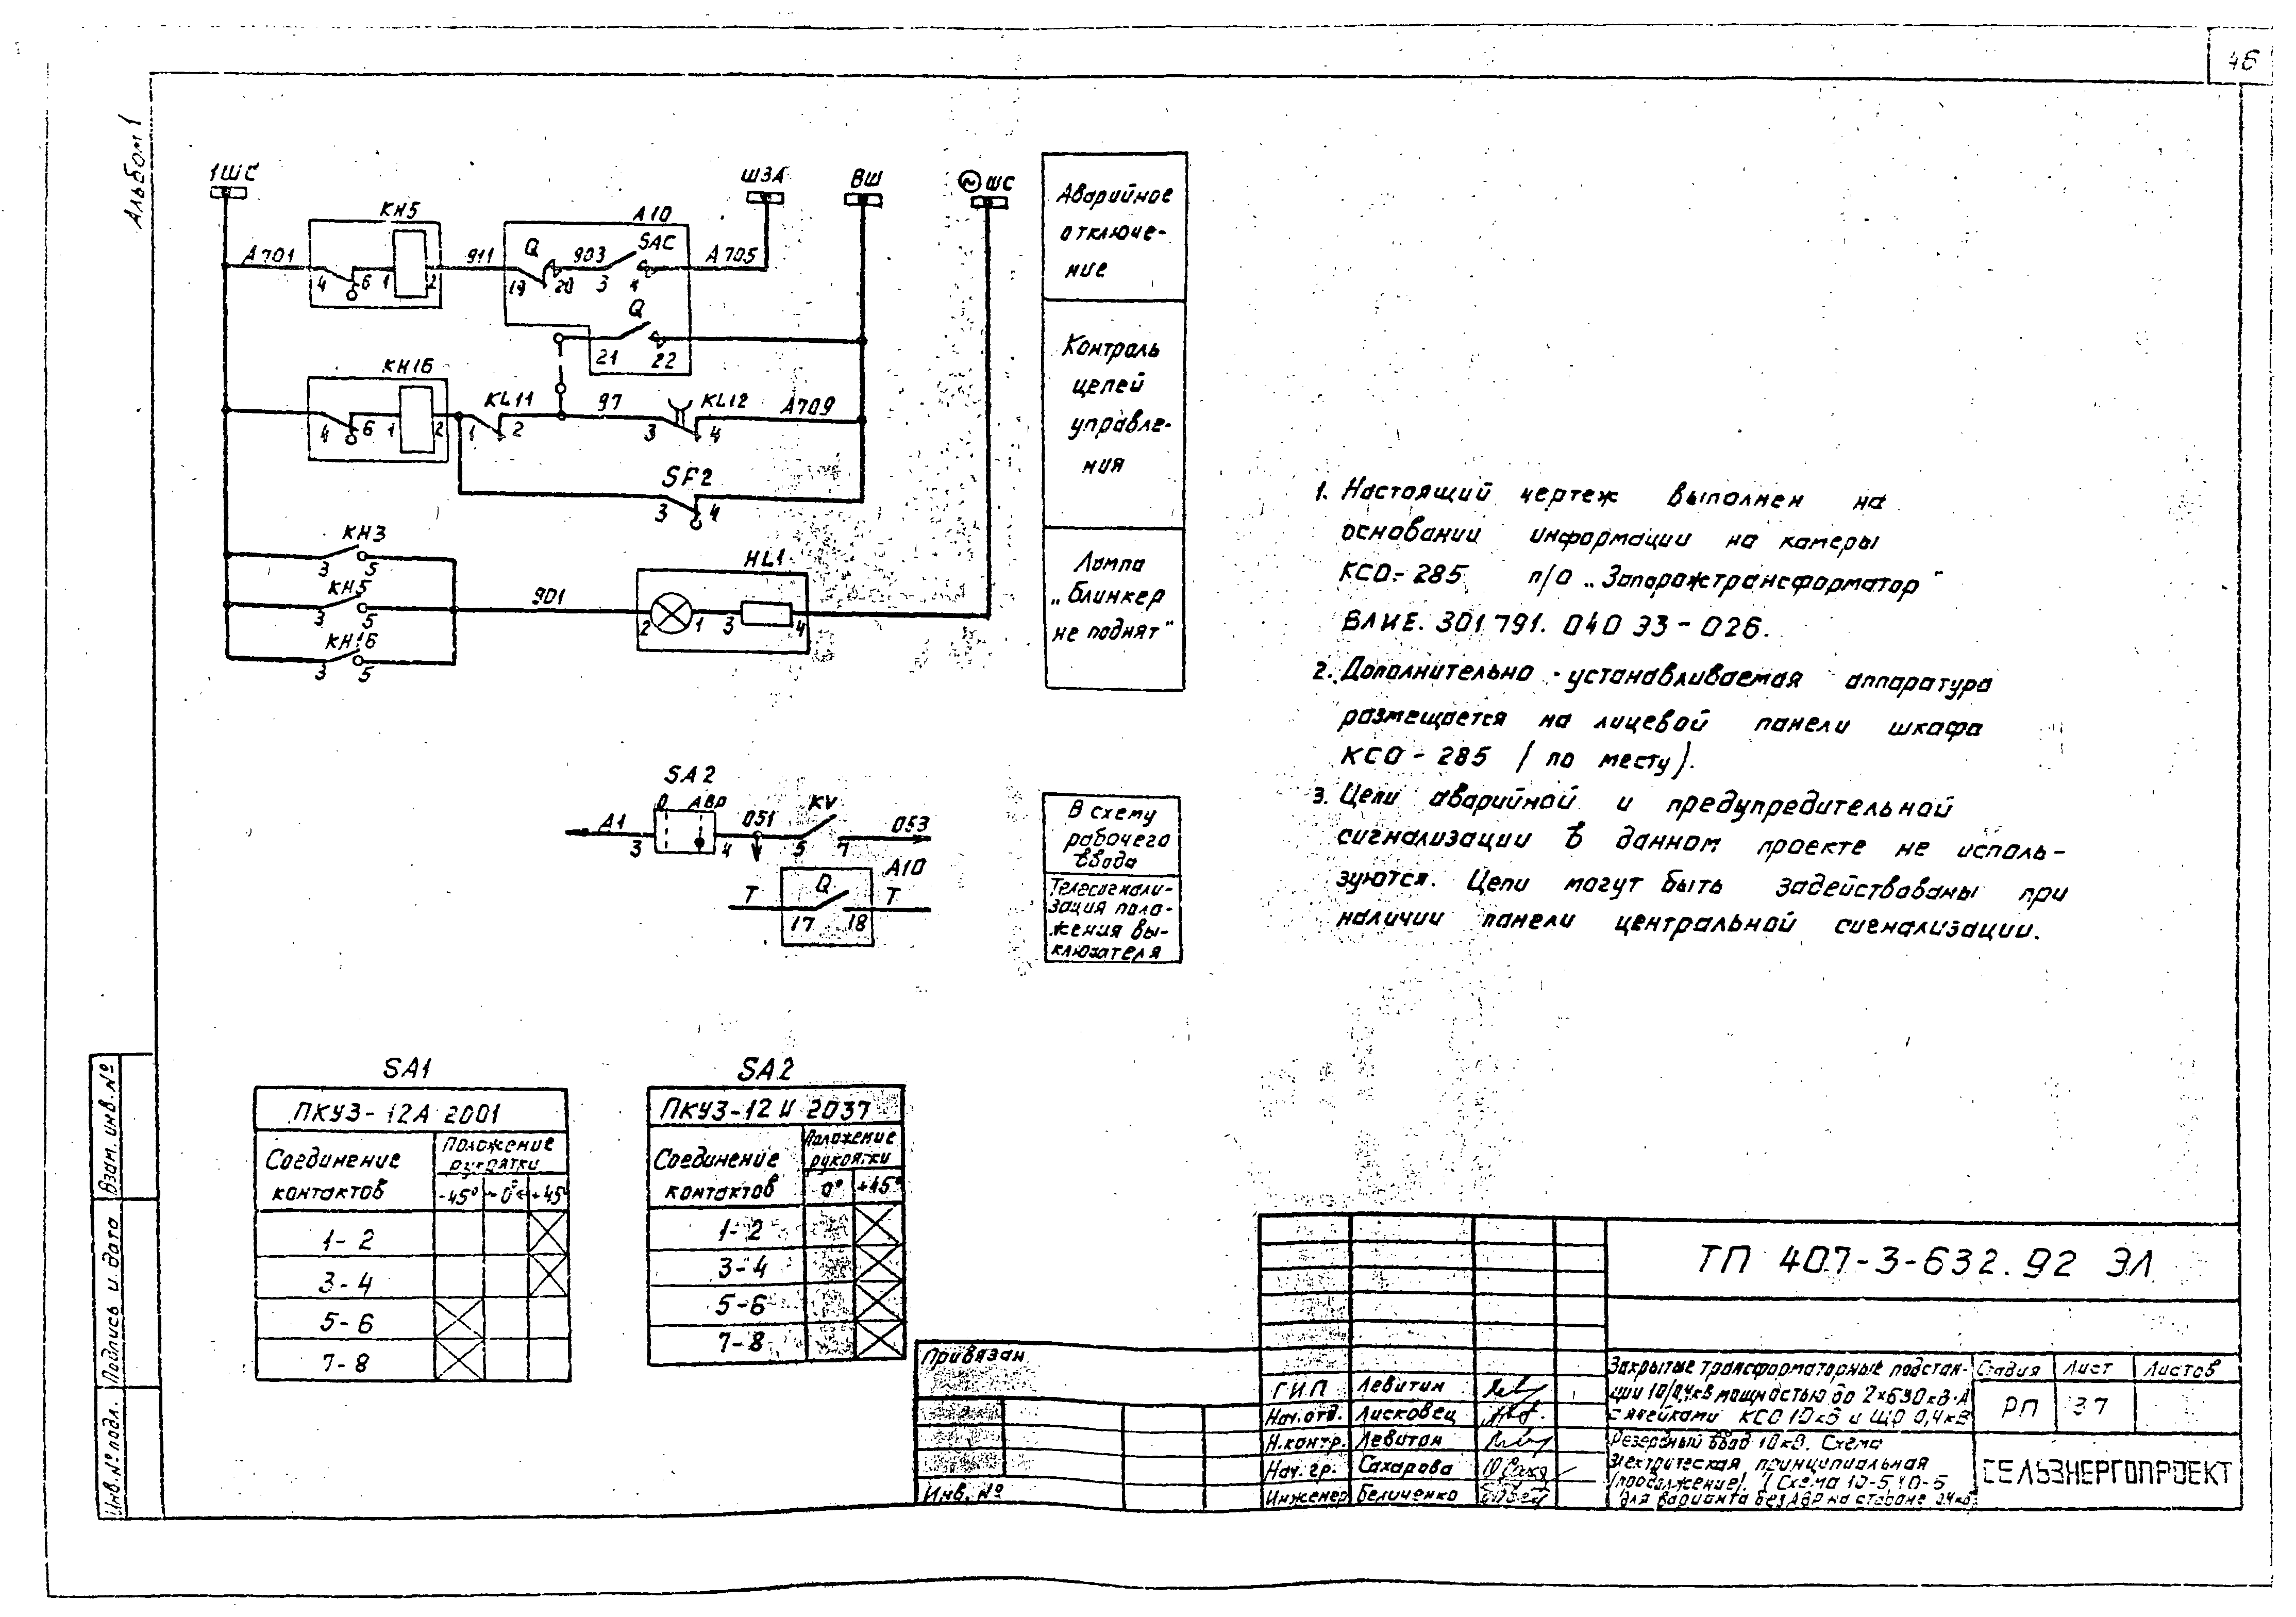 46
Альбом 1
1ШС
ШЗА
ВШ
ШС
КН5
А10
А701
911
Q
903
SAC
А705
4 6 1 2
19 20 3 4
Q
21 22
КН16
KL11
97
KL12
А709
4 6 1 2
1 2
3 4
SF2
3 4
КН3
3 5
КН5
3 5
КН16
3 5
901
HL1
2 1 3 4
Аварийное
отключе-
ние
Контроль
цепей
управле-
ния
Лампа
„Блинкер
не поднят"
SA2
0 АВР
А1
3 4
051
KV
5 7
053
А10
Т
Q
Т
17 18
В схему
рабочего
ввода
Телесигнали-
зация поло-
жения вы-
ключателя
1. Настоящий чертеж выполнен на
основании информации на камеры
КСО-285 п/о „Запорожтрансформатор"
ВЛИЕ. 301791. 040 ЭЗ-026.
2. Дополнительно устанавливаемая аппаратура
размещается на лицевой панели шкафа
КСО-285 / по месту).
3. Цепи аварийной и предупредительной
сигнализации в данном проекте не исполь-
зуются. Цепи могут быть задействованы при
наличии панели центральной сигнализации.
SA1
ПКУЗ-12А 2001
Соединение
контактов
Положение
рукоятки
-45° 0° +45°
1-2
3-4
5-6
7-8
SA2
ПКУЗ-12И 2037
Соединение
контактов
Положение
рукоятки
0° +45°
1-2
3-4
5-6
7-8
Взам. инв. №
Подпись и дата
Инв. № подл.
Привязан
Инв. №
ТП 407-3-632.92 ЭЛ
ГИП Левитин
Нач. отд. Лисковец
Н.контр. Левитан
Нач. гр. Сахарова
Инженер Беличенко
Закрытые трансформаторные подстан-
ции 10/0,4кВ мощностью до 2×630кВ·А
с ячейками КСО 10кВ и ЩО 0,4кВ
Стадия Лист Листов
РП 37
Резервный ввод 10кВ. Схема
электрическая принципиальная
/продолжение/. / Схема 10-5, 10-6
для варианта без АВР на стороне 0.4кВ/
СЕЛЬЭНЕРГОПРОЕКТ